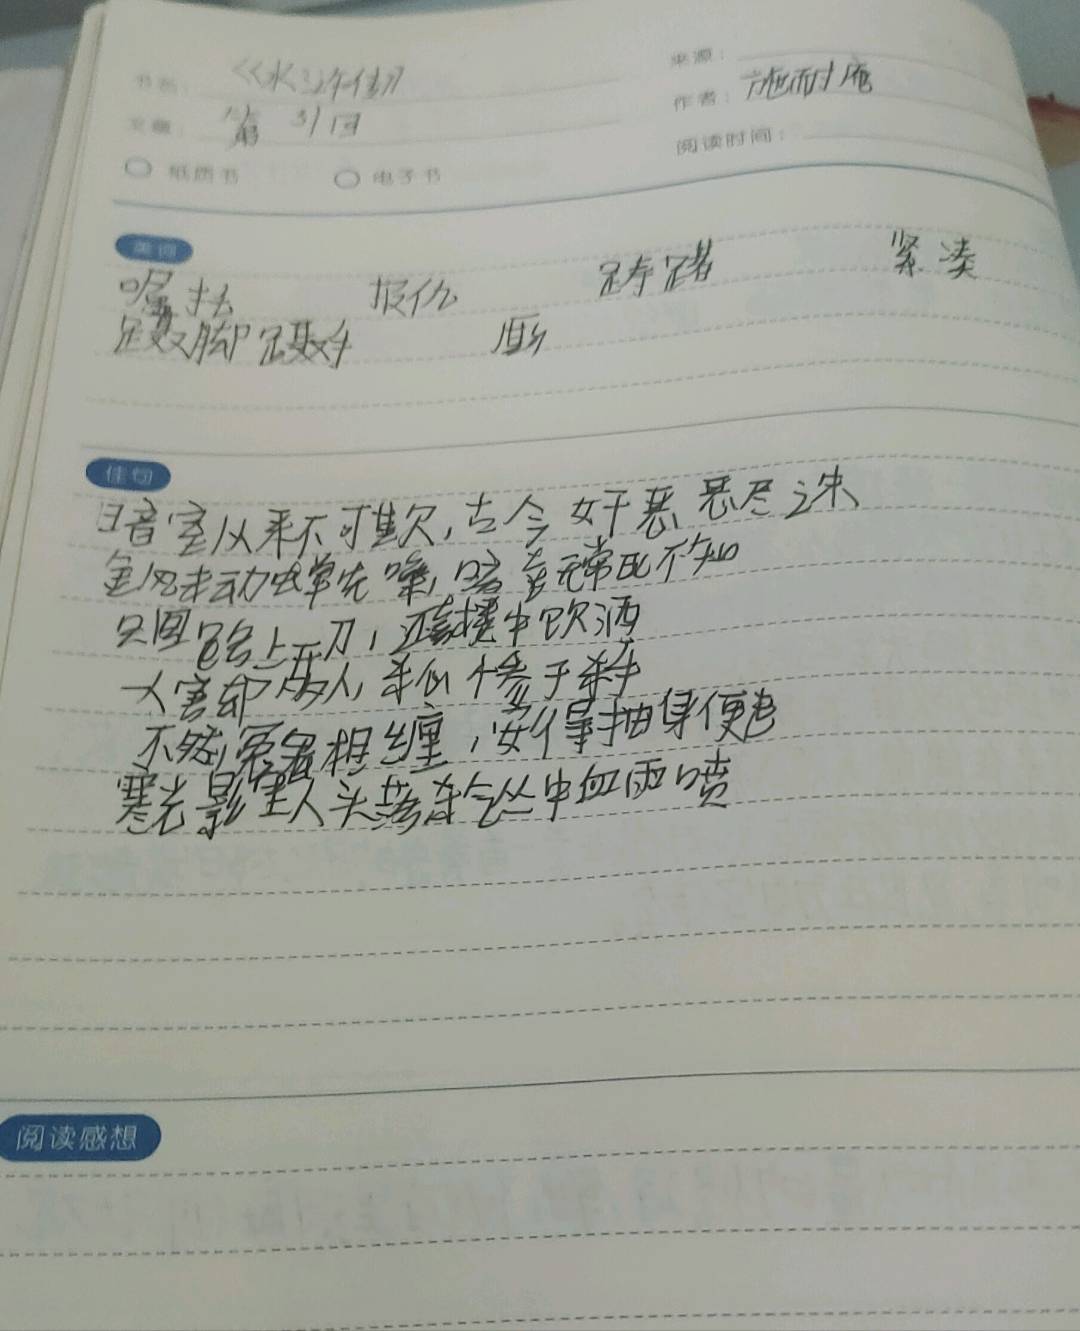 书名：《水浒传》
来源：
文章：第31回
作者：施耐庵
纸质书 电子书
阅读时间：
美词
嘱托 报仇 踌躇 紧凑
蹑脚蹑手 厮
佳句
暗室从来不可欺，古今奸恶恶尽之诛
金风未动蝉先噪，暗无常死不知
只图路上开刀，还喜楼中饮酒
人害却多人，杀心惨于杀手
不然冤鬼相缠，安得抽身便走
寒光影里人头落杀气丛中血雨喷
阅读感想